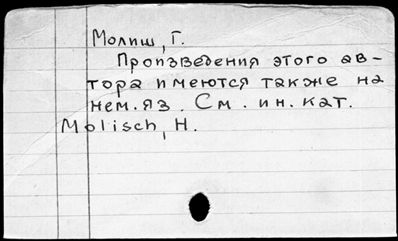 Молиш, Г.
Произведения этого ав-
тора имеются также на
нем. яз. См. ин. кат.
Molisch, H.